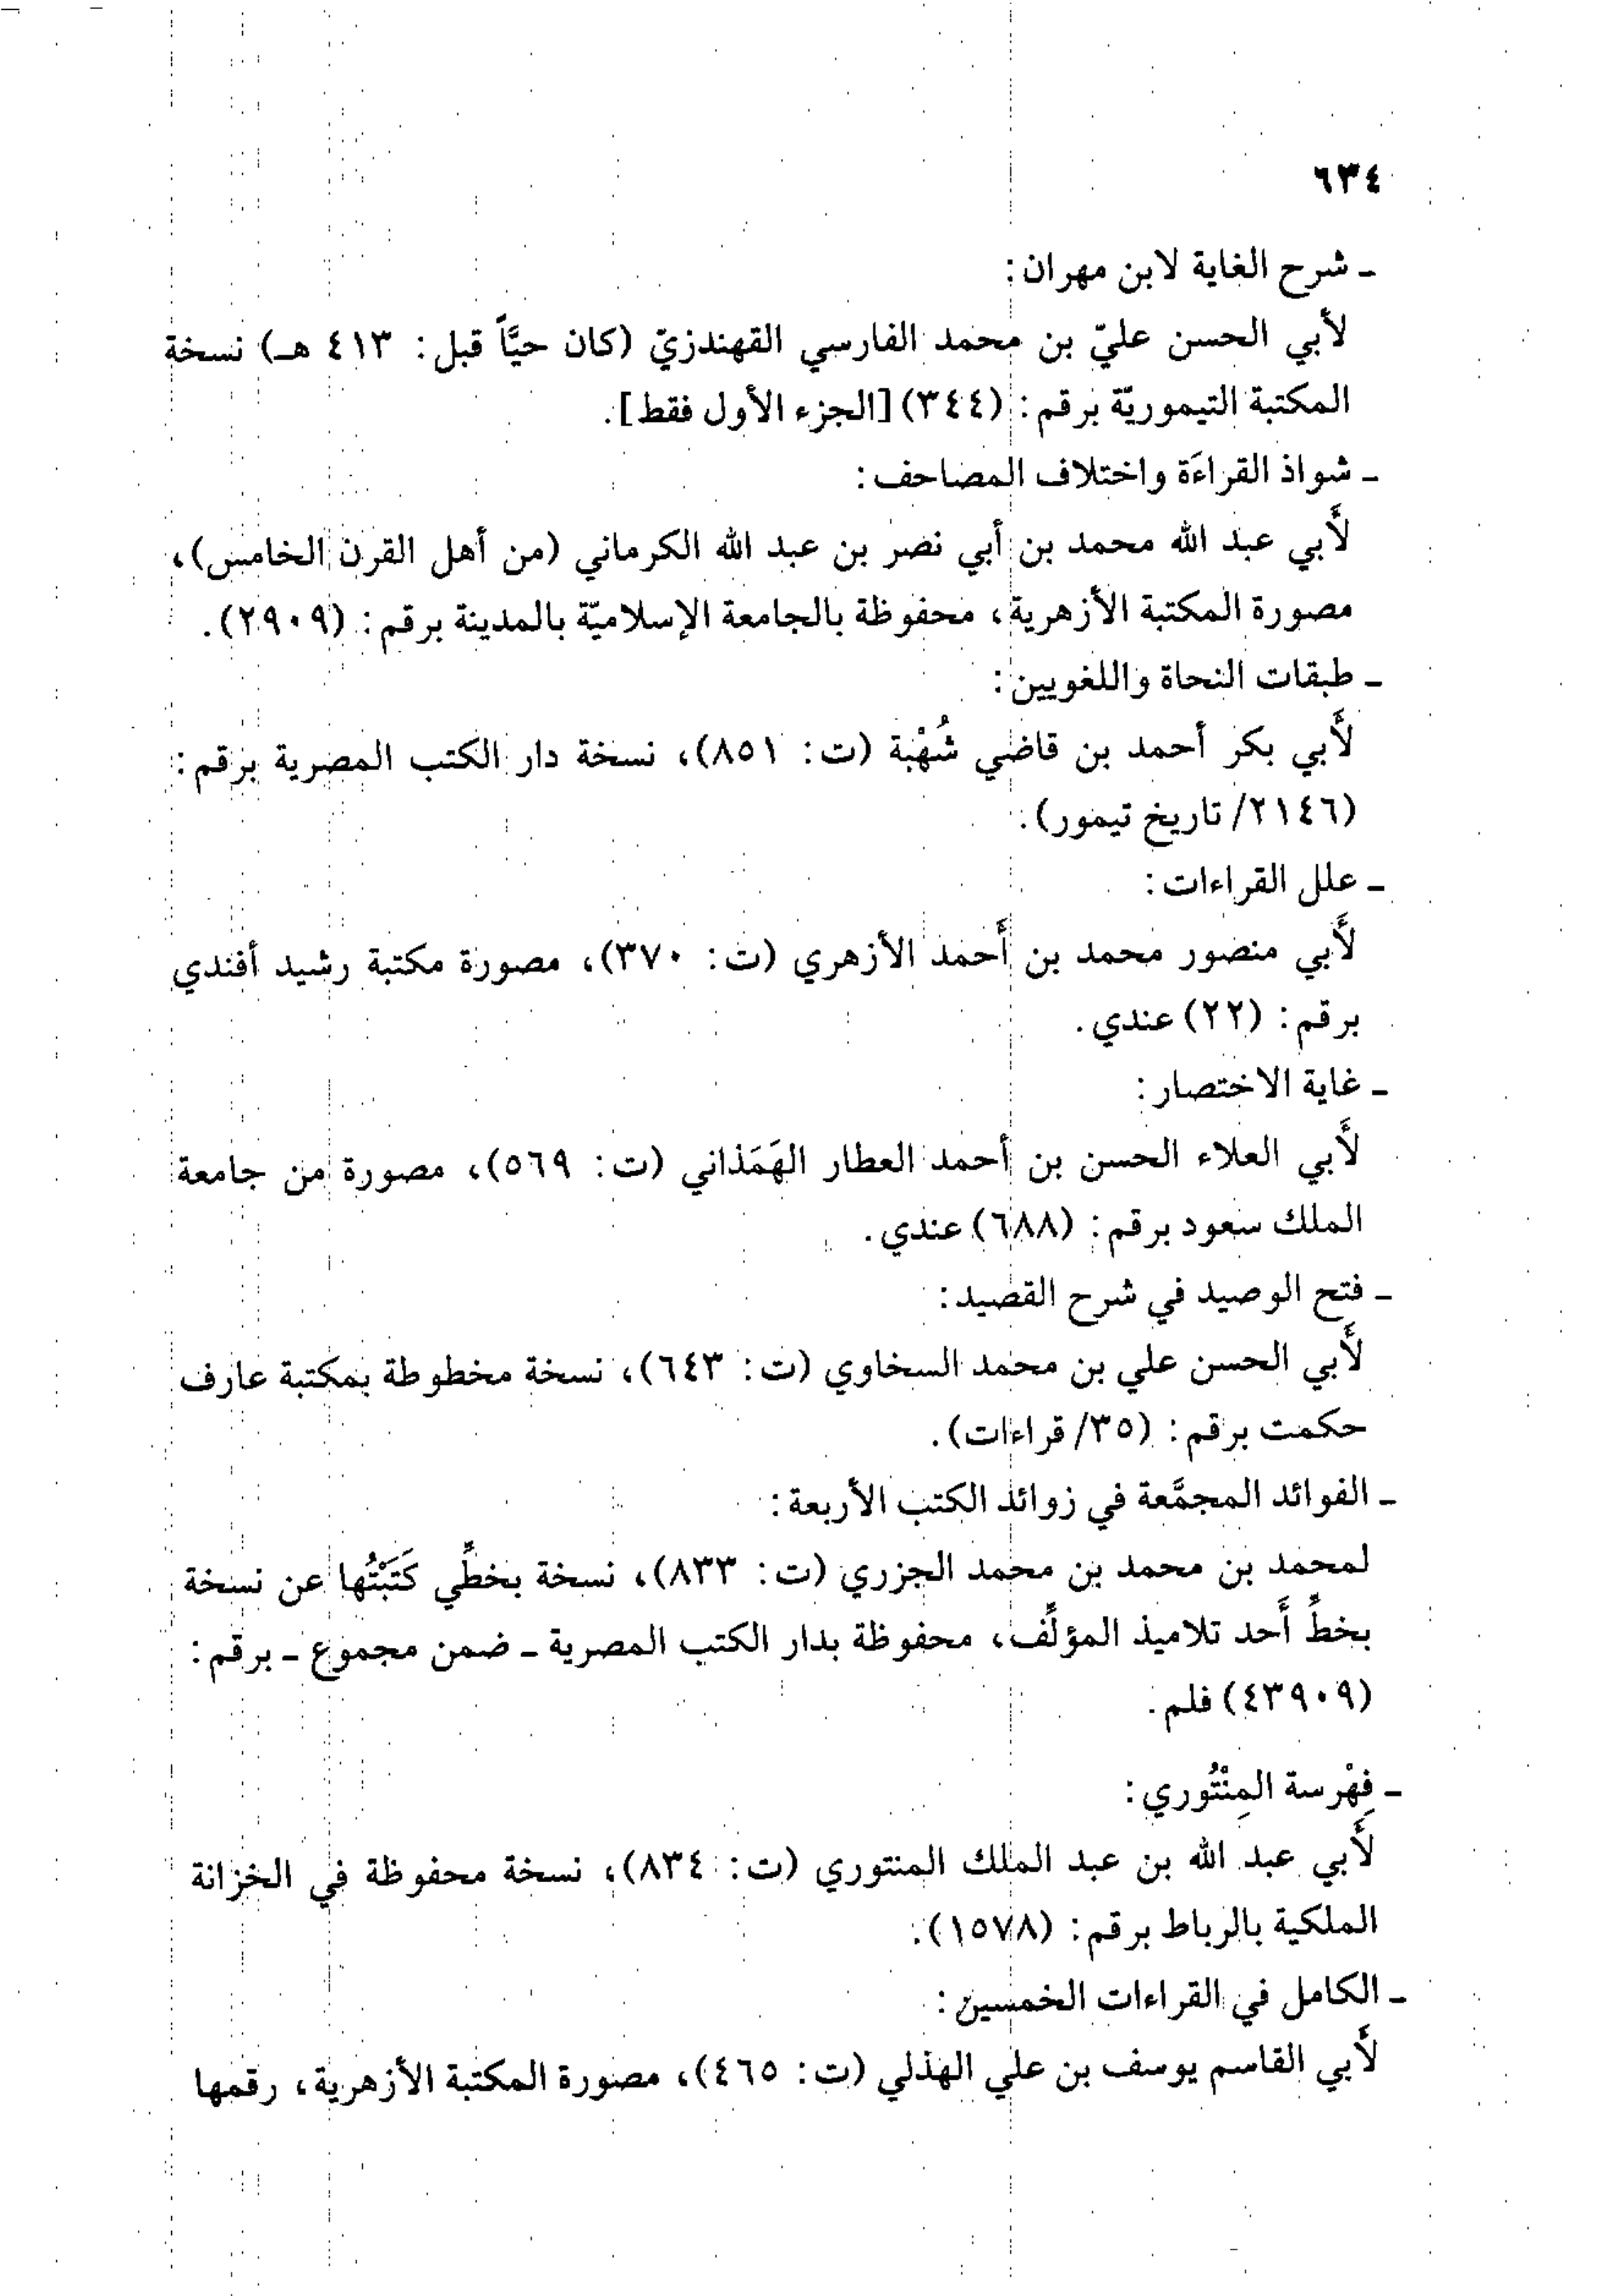 ٦٣٤
ـ شرح الغاية لابن مهران:
لأبي الحسن عليّ بن محمد الفارسي القهندزيّ (كان حيَّاً قبل: ٤١٣ هـ) نسخة
المكتبة التيموريّة برقم: (٣٤٤) [الجزء الأول فقط].
ـ شواذ القراءَة واختلاف المصاحف:
لأَبي عبد الله محمد بن أبي نصر بن عبد الله الكرماني (من أهل القرن الخامس)،
مصورة المكتبة الأزهرية، محفوظة بالجامعة الإسلاميّة بالمدينة برقم: (٢٩٠٩).
ـ طبقات النحاة واللغويين:
لأَبي بكر أحمد بن قاضي شُهْبة (ت: ٨٥١)، نسخة دار الكتب المصرية برقم:
(٢١٤٦/ تاريخ تيمور).
ـ علل القراءات:
لأَبي منصور محمد بن أَحمد الأزهري (ت: ٣٧٠)، مصورة مكتبة رشيد أفندي
برقم: (٢٢) عندي.
ـ غاية الاختصار:
لأَبي العلاء الحسن بن أحمد العطار الهَمَذاني (ت: ٥٦٩)، مصورة من جامعة
الملك سعود برقم: (٦٨٨) عندي.
ـ فتح الوصيد في شرح القصيد:
لأَبي الحسن علي بن محمد السخاوي (ت: ٦٤٣)، نسخة مخطوطة بمكتبة عارف
حكمت برقم: (٣٥/ قراءات).
ـ الفوائد المجمَّعة في زوائد الكتب الأربعة:
لمحمد بن محمد بن محمد الجزري (ت: ٨٣٣)، نسخة بخطِّي كَتَبْتُها عن نسخة
بخطِّ أَحد تلاميذ المؤلِّف، محفوظة بدار الكتب المصرية ـ ضمن مجموع ـ برقم:
(٤٣٩٠٩) فلم.
ـ فِهْرسة المِنْتُوري:
لأَبي عبد الله بن عبد الملك المنتوري (ت: ٨٣٤)، نسخة محفوظة في الخزانة
الملكية بالرباط برقم: (١٥٧٨).
ـ الكامل في القراءات الخمسين:
لأَبي القاسم يوسف بن علي الهذلي (ت: ٤٦٥)، مصورة المكتبة الأزهرية، رقمها